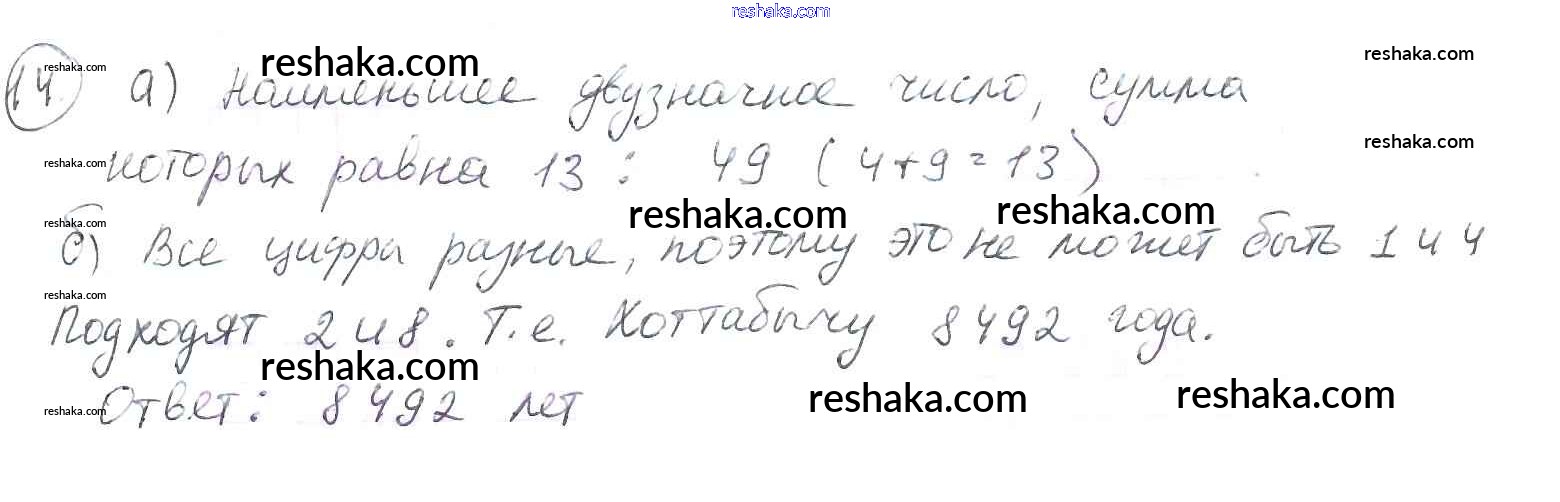 reshaka.com
14. а) Наименьшее двузначное число, сумма
которых равна 13 : 49 (4+9=13)
б) Все цифры разные, поэтому это не может быть 1 и 4
Подходят 2 и 8. Т.е. Хоттабычу 8492 года.
Ответ: 8492 лет
reshaka.com
reshaka.com
reshaka.com
reshaka.com
reshaka.com
reshaka.com
reshaka.com
reshaka.com
reshaka.com
reshaka.com
reshaka.com
reshaka.com
reshaka.com